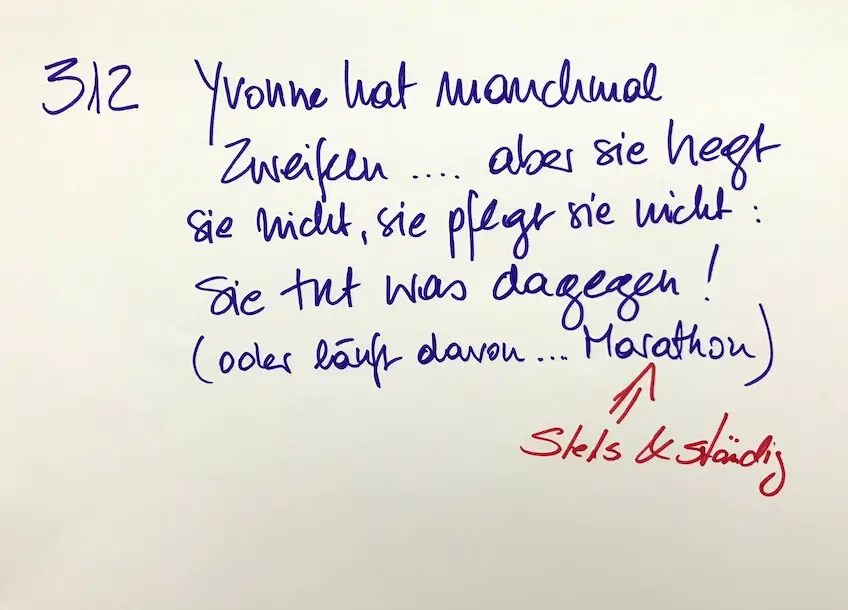 312 Yvonne hat manchmal
Zweifeln .... aber sie hegt
sie nicht, sie pflegt sie nicht :
Sie tut was dagegen !
(oder läuft davon ... Marathon)
Stets & ständig